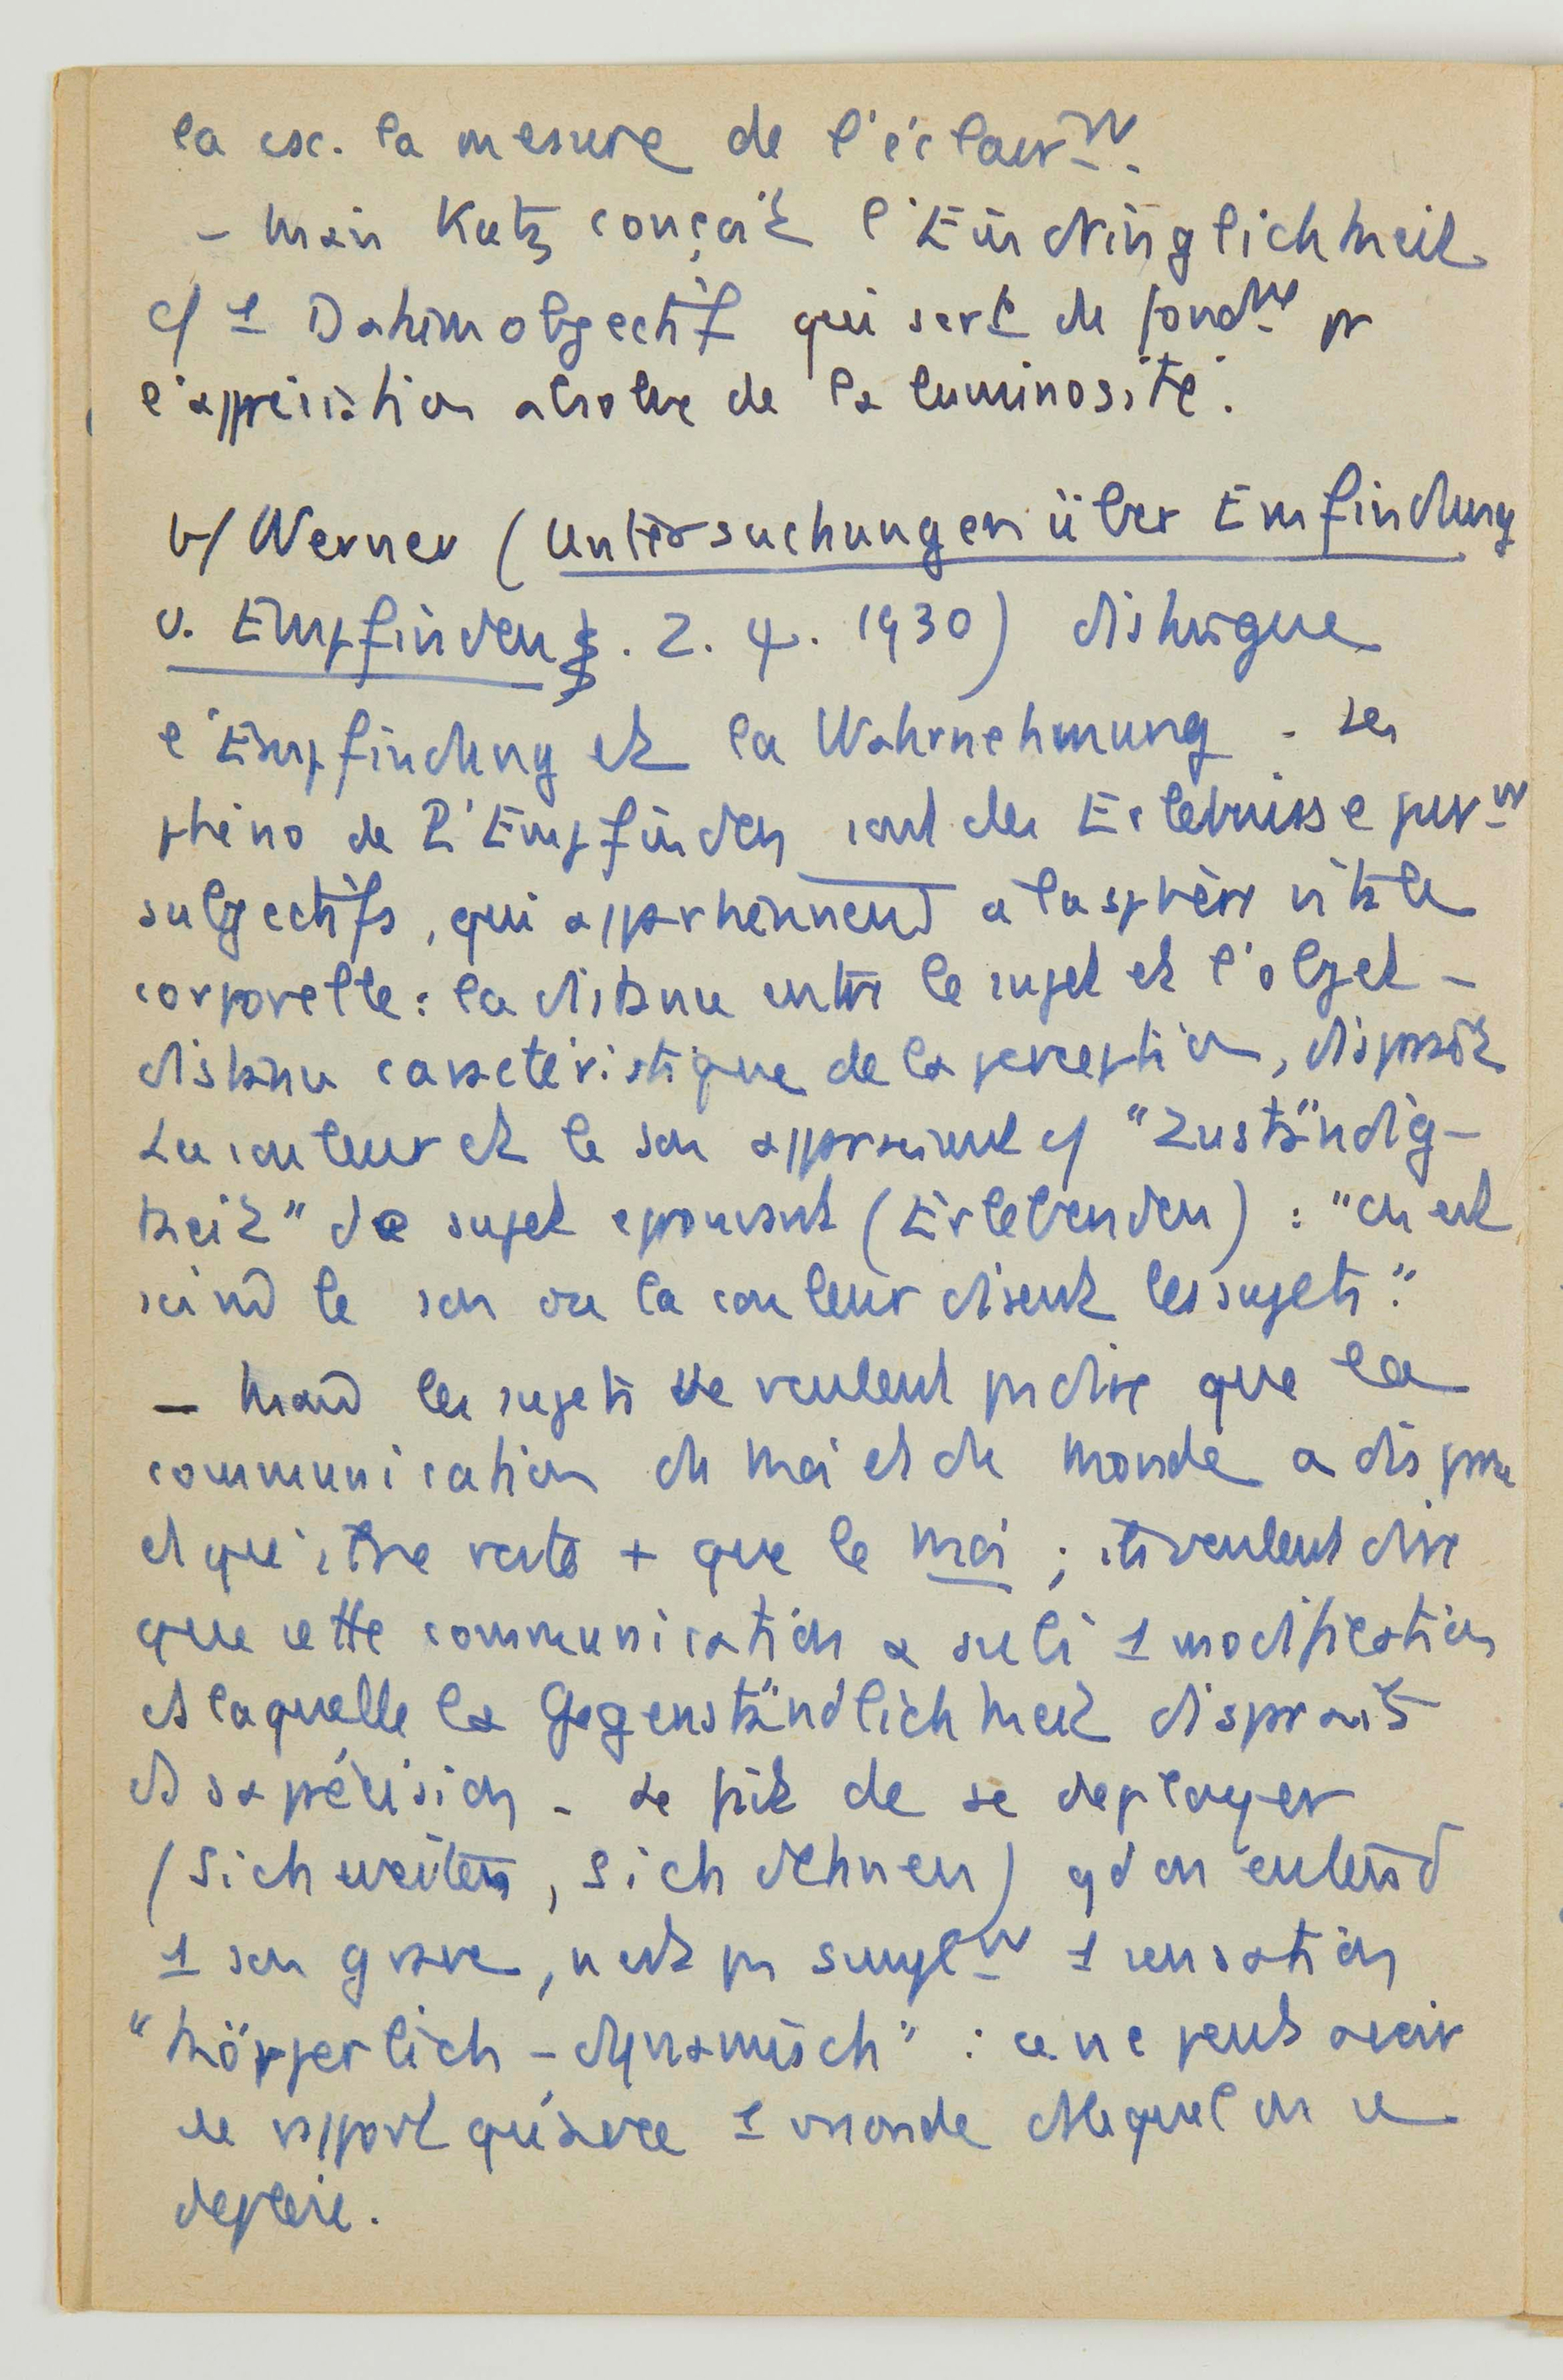 la csc. la mesure de l'éclairᵐᵗ.
– Mais Katz conçoit l'Eindringlichkeit
c/ 1 Datum objectif qui sert de fondᵐᵗ pr
l'appréciation absolue de la luminosité.
b/ Werner (Untersuchungen über Empfindung
u. Empfinden . Z. . 1930) distingue
l'Empfindung et la Wahrnehmung . Les
phéno de l'Empfinden sont des Erlebnisse purᵐᵗ
subjectifs, qui appartiennent à la sphère vitale
corporelle : la distance entre le sujet et l'objet –
distance caractéristique de la perception, disparaît
La couleur et le son apparaissent c/ "Zuständig-
keit" de sujet éprouvant (Erlebenden) : "on est
soi-m̂ le son ou la couleur disent les sujets".
– Mais les sujets ne veulent pas dire que la
communication du moi et du monde a disparu
et qu'il ne reste + que le moi ; ils veulent dire
que cette communication a subi 1 modification
ds laquelle la Gegenständlichkeit disparaît
ds sa précision – Le fait de se déployer
(sich weiten, sich dehnen) qd on entend
1 son grave, n'est pas simplᵐᵗ 1 sensation
"körperlich – dynamisch" : ce ne peut avoir
de rapport qu'avec 1 monde ds lequel on se
déploie.